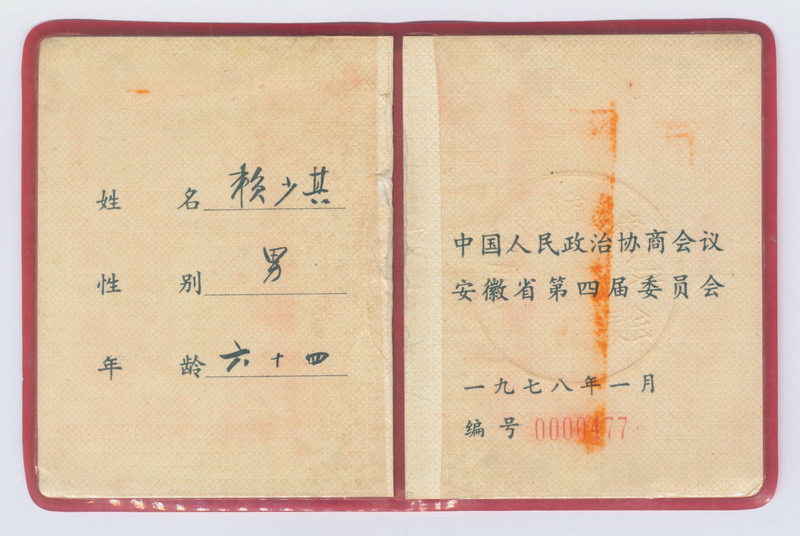 姓 名 赖少其
性 别 男
年 龄 六十四
中国人民政治协商会议
安徽省第四届委员会
一九七八年一月
编号 0000477